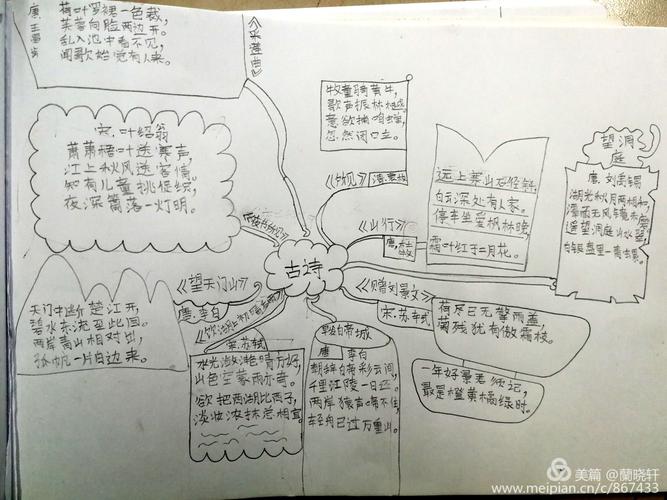 唐.王昌龄
荷叶罗裙一色裁,
芙蓉向脸两边开。
乱入池中看不见,
闻歌始觉有人来。
《采莲曲》
宋.叶绍翁
萧萧梧叶送寒声,
江上秋风送客情。
知有儿童挑促织,
夜深篱落一灯明。
牧童骑黄牛,
歌声振林樾。
意欲捕鸣蝉,
忽然闭口立。
《所见》
清.袁枚
远上寒山石径斜,
白云深处有人家。
停车坐爱枫林晚,
霜叶红于二月花。
《山行》
唐.杜牧
望洞庭
唐.刘禹锡
湖光秋月两相和,
潭面无风镜未磨。
遥望洞庭山水翠,
白银盘里一青螺。
古诗
《望天门山》
唐.李白
天门中断楚江开,
碧水东流至此回。
两岸青山相对出,
孤帆一片日边来。
《饮湖上初晴后雨》
宋.苏轼
水光潋滟晴方好,
山色空蒙雨亦奇。
欲把西湖比西子,
淡妆浓抹总相宜。
早发白帝城
唐 李白
朝辞白帝彩云间,
千里江陵一日还。
两岸猿声啼不住,
轻舟已过万重山。
《赠刘景文》
宋.苏轼
荷尽已无擎雨盖,
菊残犹有傲霜枝。
一年好景君须记,
最是橙黄橘绿时。
美篇 @蘭晓轩
www.meipian.cn/c/867433